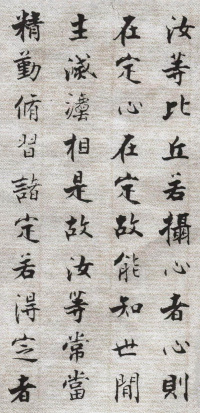 汝等比丘若攝心者心則
在定心在定故能知世間
生滅灋相是故汝等常當
精勤脩習諸定若得定者